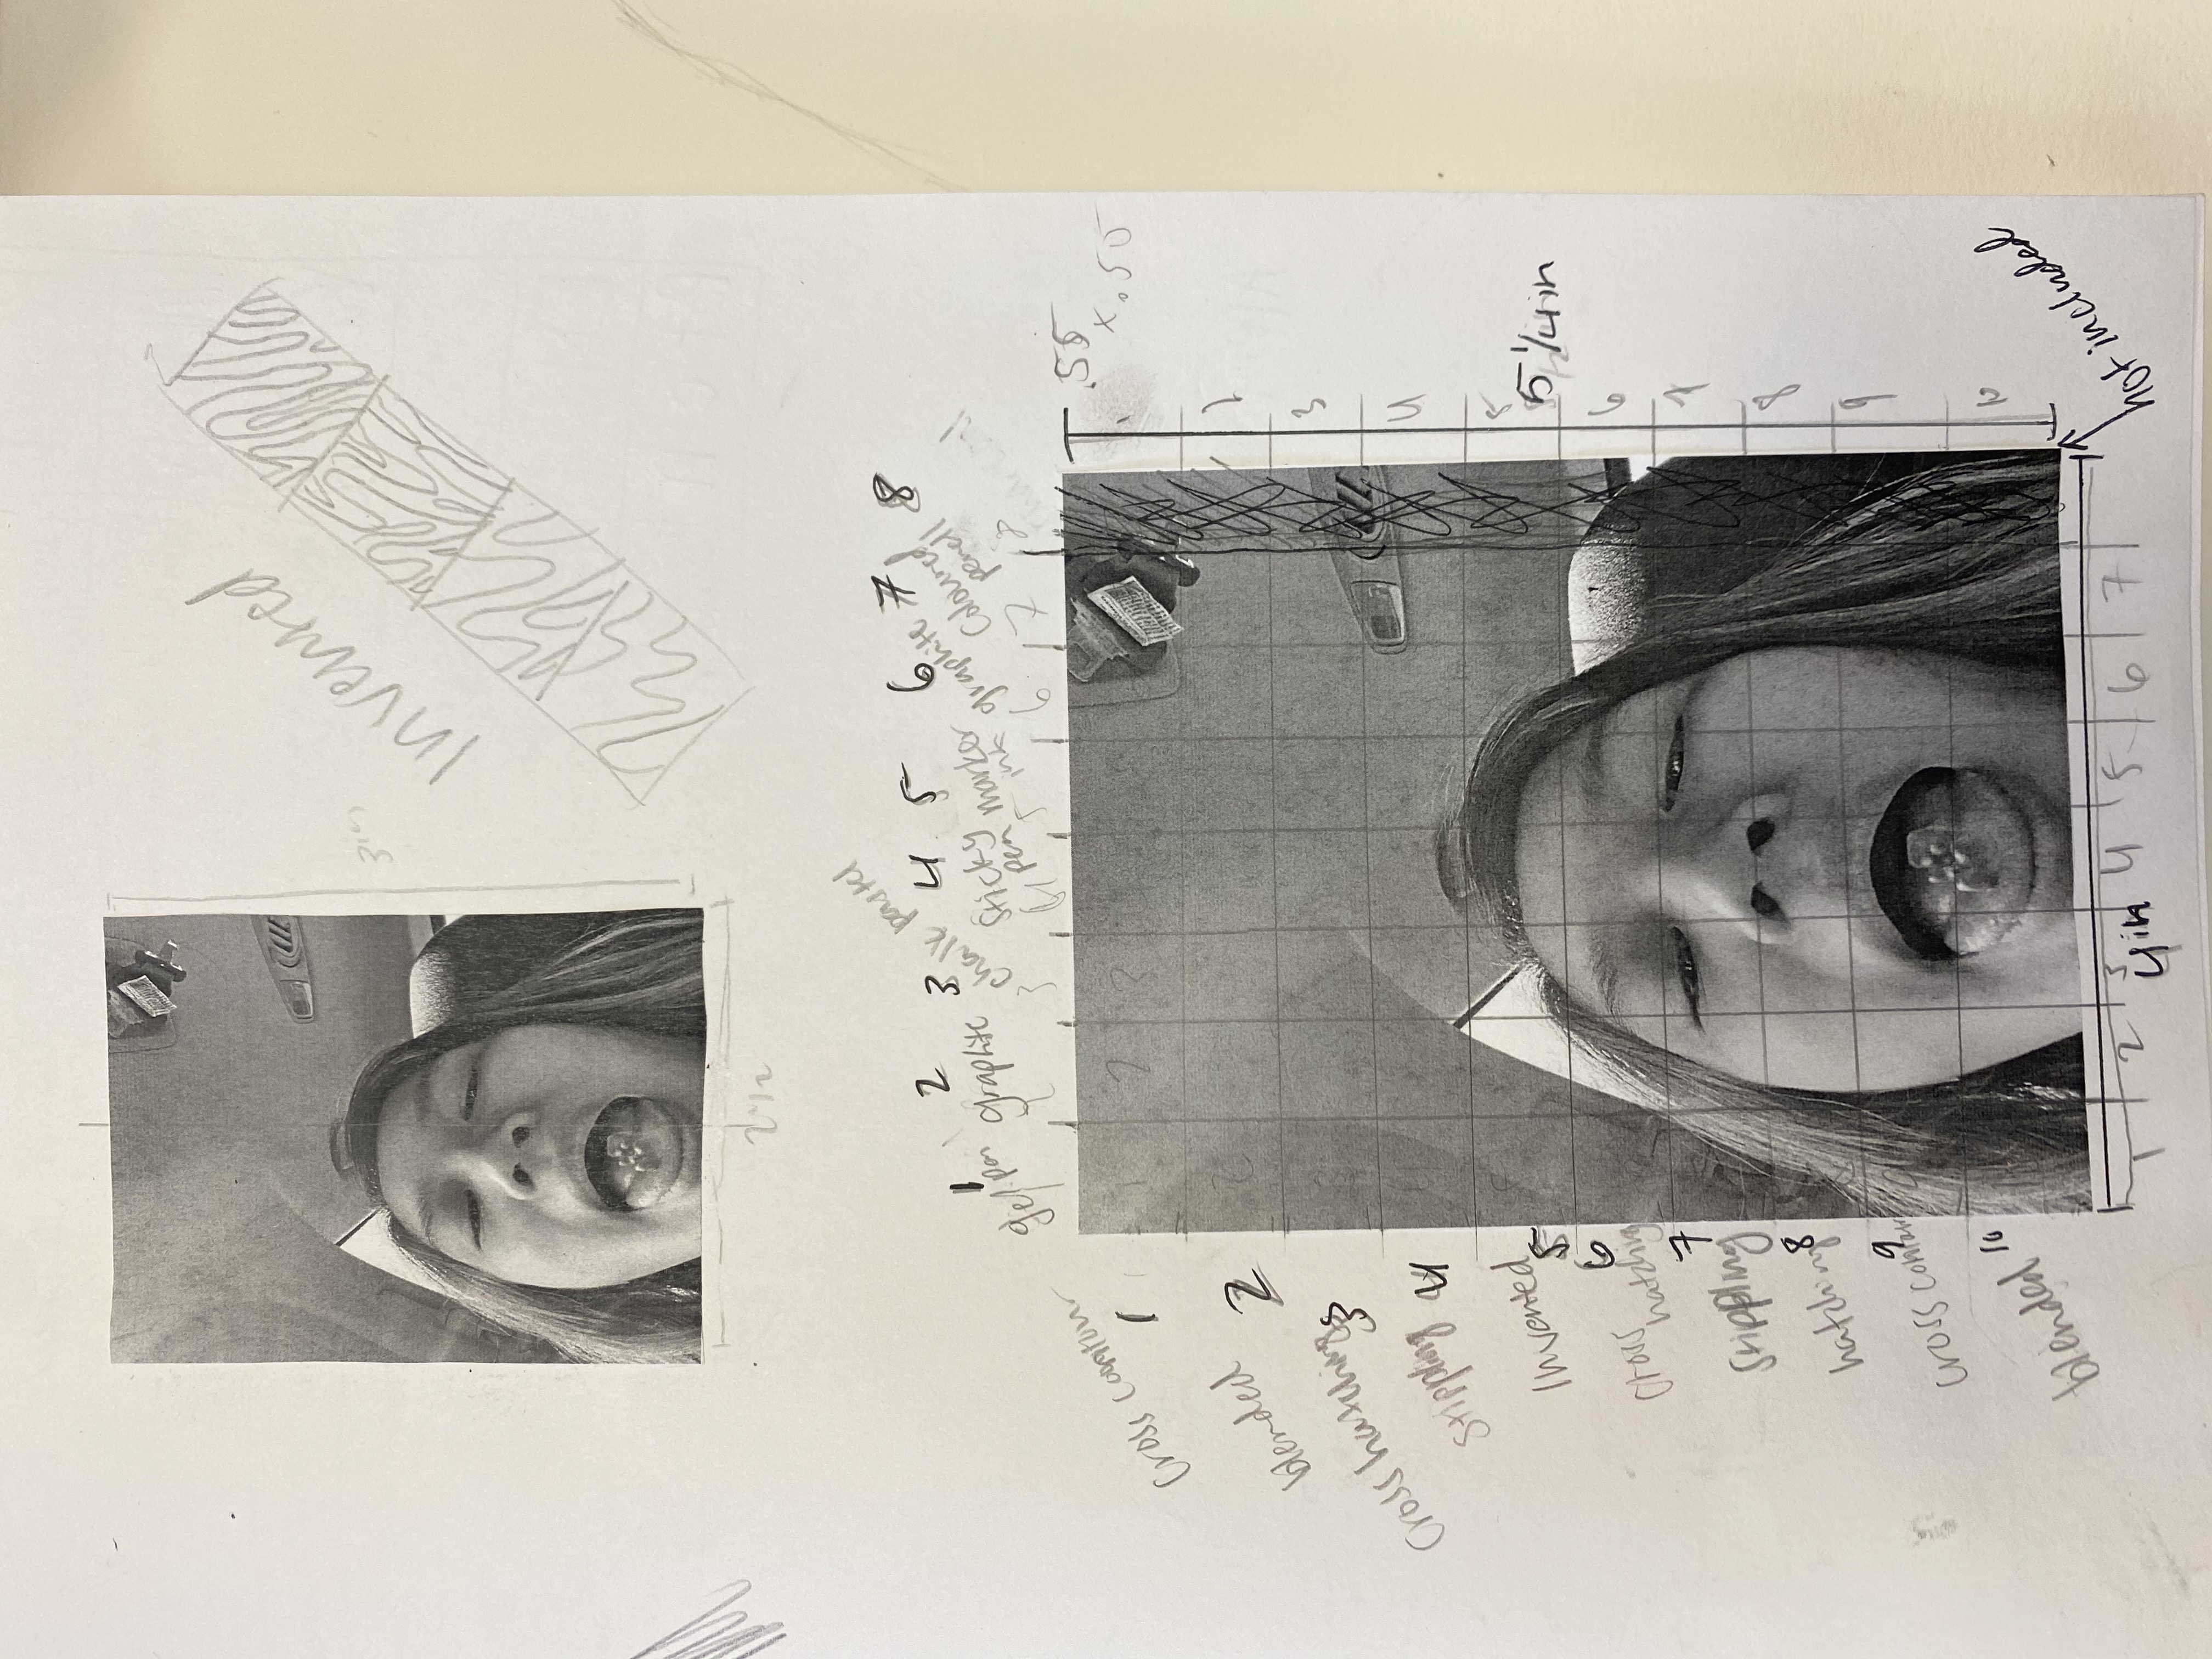 3in
Invented
2 1/2
1 2 3 4 5 6 7 8
gel pen
graphite
chalk pastel
Sticky pen
marker ink
graphite
Coloured pencil
2 3 5 6 7 8
.55 x .55
cross contour 1
blended 2
cross hatching 3
stippling 4
Invented 5
cross hatching 6
Stippling 7
hatching 8
cross contour 9
blended 10
1 2 2
2
3
4
5
5 1/4 in
6
7
8
9
10
1 2 3 4 5 6 7
4 in
not included